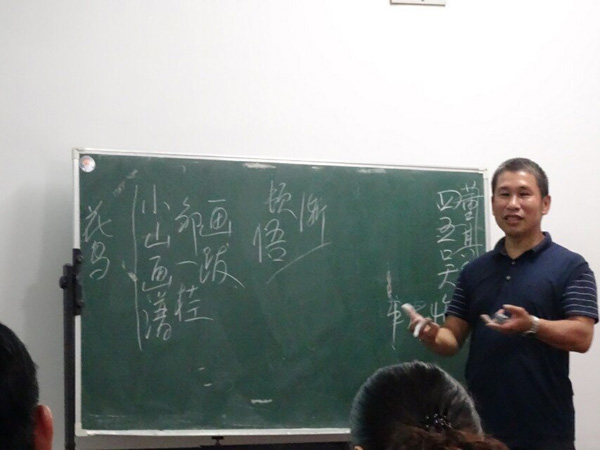 董其
四王吴
渐
顿悟
画跋
邹一桂
小山画谱
花鸟